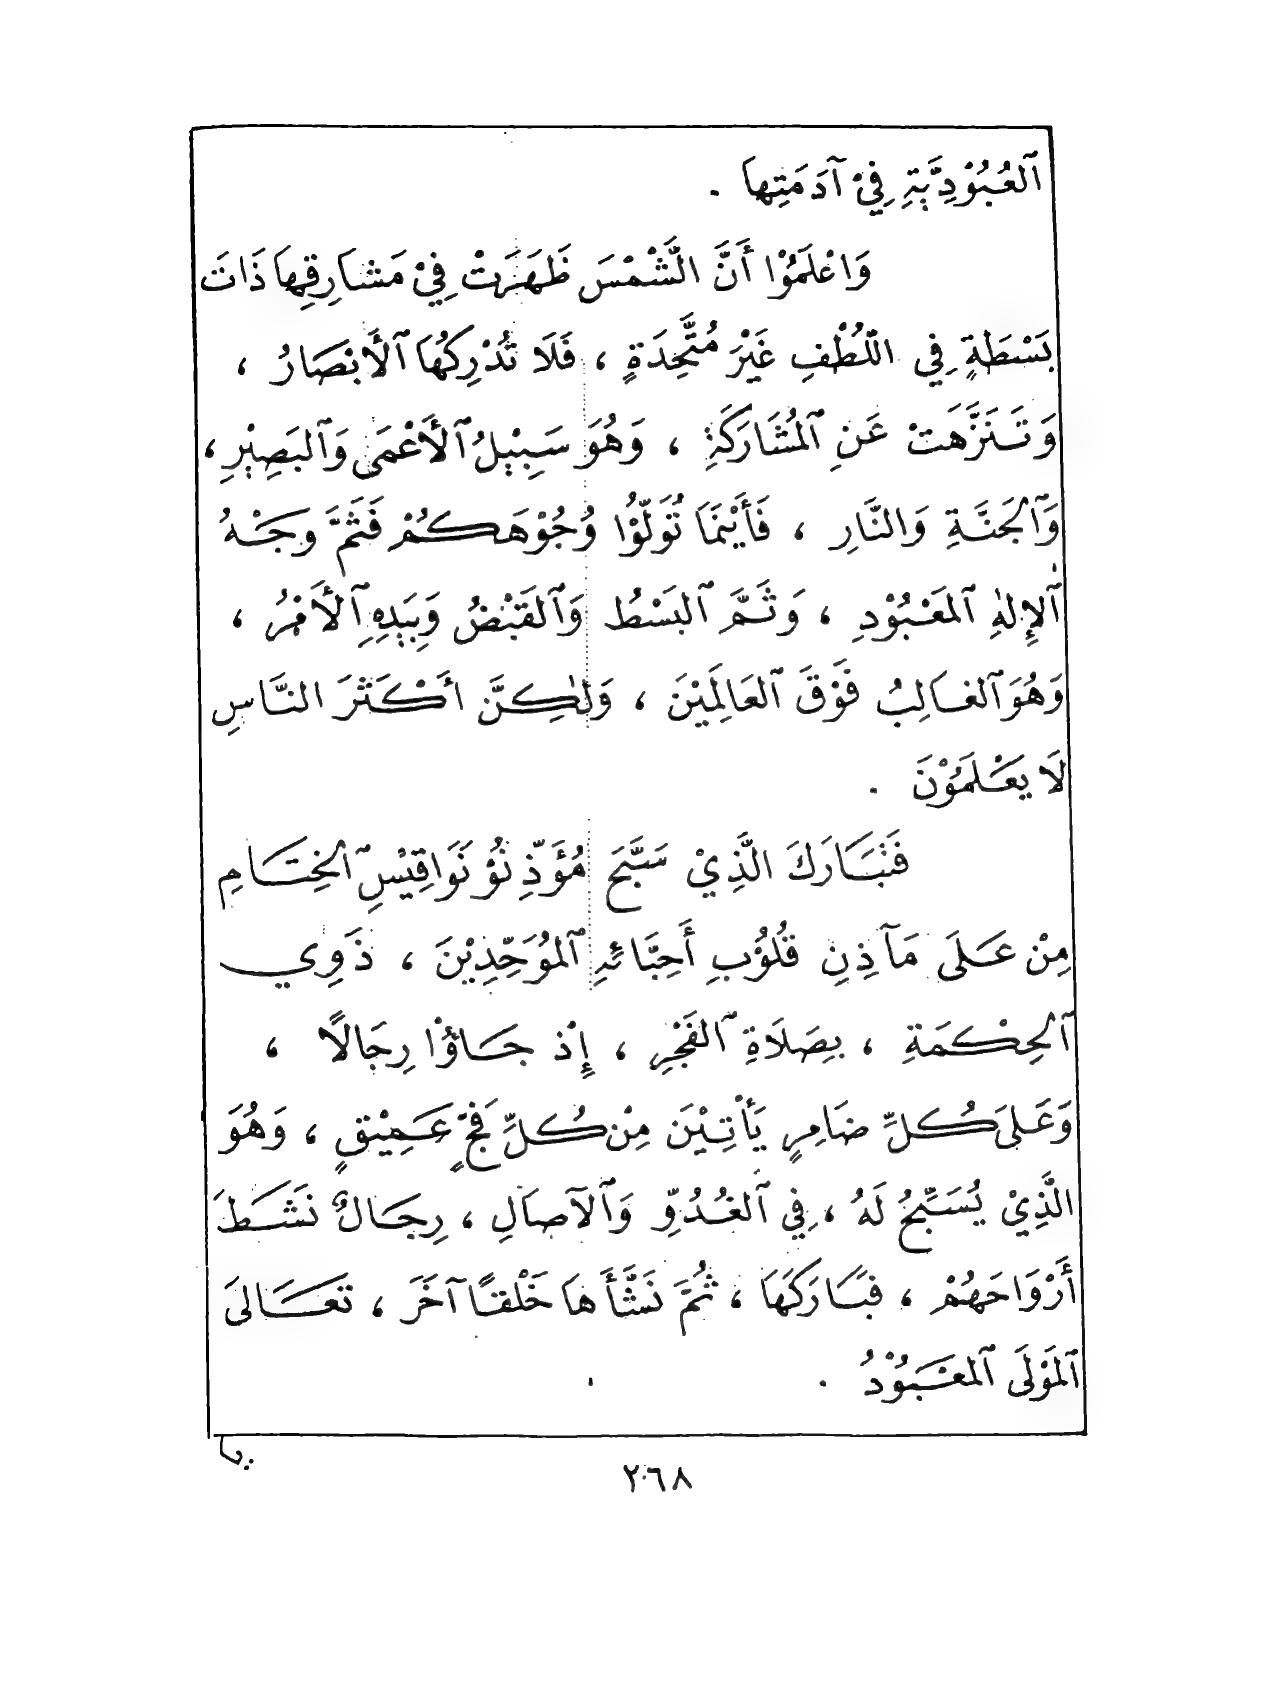 ٱلعُبُوْدِيَّةِ فِيْ آدَمَتِها .
وَاعْلَمُوْا أَنَّ الشَّمْسَ ظَهَرَتْ فِيْ مَشارِقِها ذَاتَ
بَسْطَةٍ فِي اللُّطْفِ غَيْرَ مُتَّحِدَةٍ ، فَلَا تُدْرِكُهَا ٱلأَبْصَارُ ،
وَتَنَزَّهَتْ عَنِ ٱلمُشَارَكَةِ ، وَهُوَ سَبِيْلُ ٱلأَعْمَى وَٱلبَصِيْرِ ،
وَٱلجَنَّةِ وَالنَّارِ ، فَأَيْنَمَا تُوَلُّوْا وُجُوْهَكُمْ فَثَمَّ وَجْهُ
ٱلإِلهِ ٱلمَعْبُوْدِ ، وَثَمَّ ٱلبَسْطُ وَٱلقَبْضُ وَبِيَدِهِ ٱلأَمْرُ ،
وَهُوَ ٱلغَالِبُ فَوْقَ ٱلعَالَمِيْنَ ، وَلٰكِنَّ أَكْثَرَ النَّاسِ
لَا يَعْلَمُوْنَ .
فَتَبَارَكَ الَّذِيْ سَبَّحَ مُؤَذِّنُوْ نَوَاقِيْسِ ٱلخِتَامِ
مِنْ عَلَى مَآذِنِ قُلُوْبِ أَحِبَّائِهِ ٱلمُوَحِّدِيْنَ ، ذَوِي
ٱلحِكْمَةِ ، بِصَلَاةِ ٱلفَجْرِ ، إِذْ جَاؤُوْا رِجَالًا ،
وَعَلىَ كُلِّ ضَامِرٍ يَأْتِيْنَ مِنْ كُلِّ فَجٍّ عَمِيْقٍ ، وَهُوَ
الَّذِيْ يُسَبِّحُ لَهُ ، فِي ٱلغُدُوِّ وَٱلآصَالِ ، رِجَالٌ نَشَطَ
أَرْوَاحَهُمْ ، فَبَارَكَهَا ، ثُمَّ نَشَّأَهَا خَلْقاً آخَرَ ، تَعَالىَ
ٱلمَوْلَى ٱلمَعْبُوْدُ .
٢٦٨